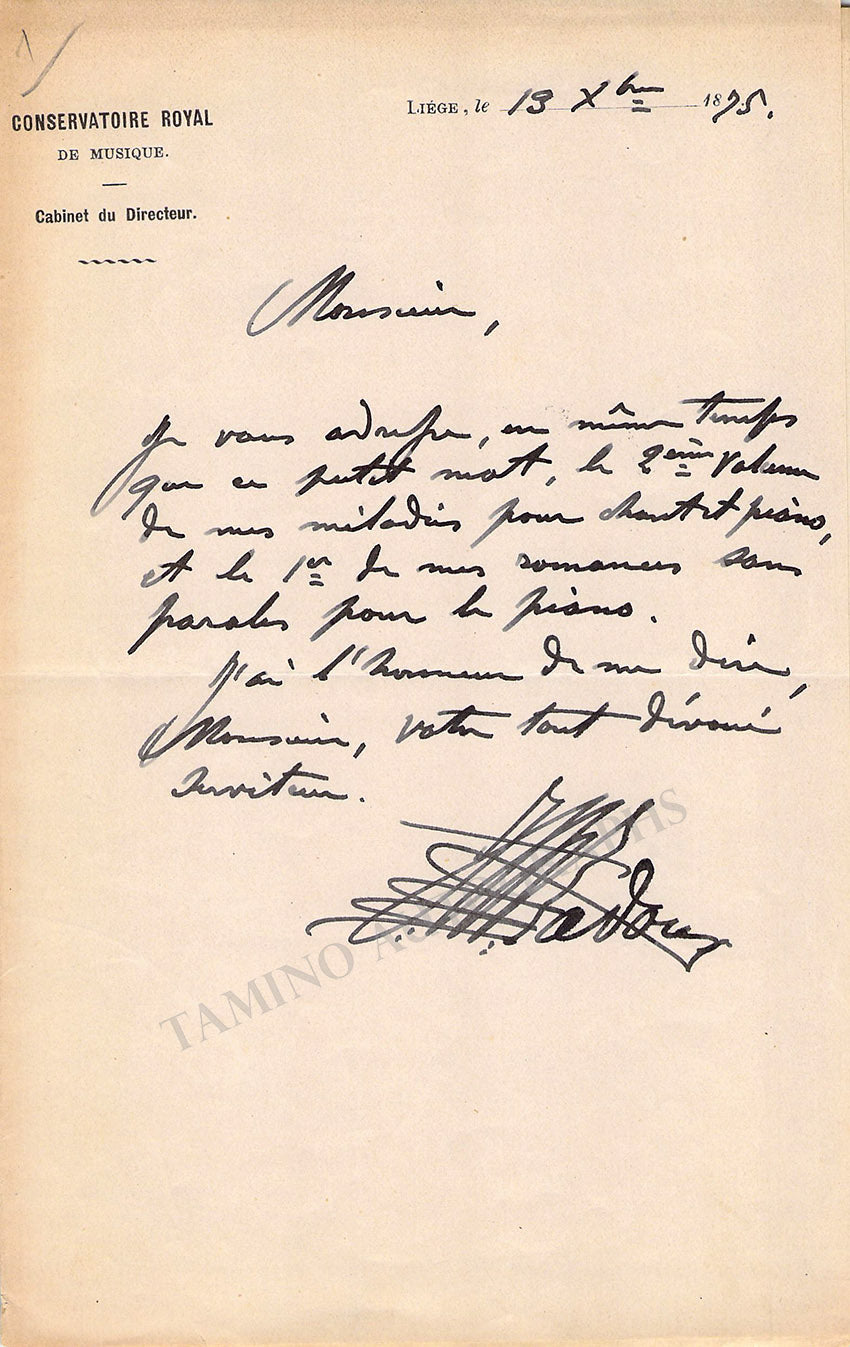 CONSERVATOIRE ROYAL
DE MUSIQUE.
Cabinet du Directeur.
LIÉGE, le 13 Xbre 1875.
Monsieur,
Je vous adresse, en même temps
que ce petit mot, le 2ème Volume
de mes mélodies pour chant et piano,
et le 1er de mes romances sans
paroles pour le piano.
J'ai l'honneur de me dire,
Monsieur, votre tout dévoué
serviteur.
Radoux
TAMINO AUTOGRAPHS